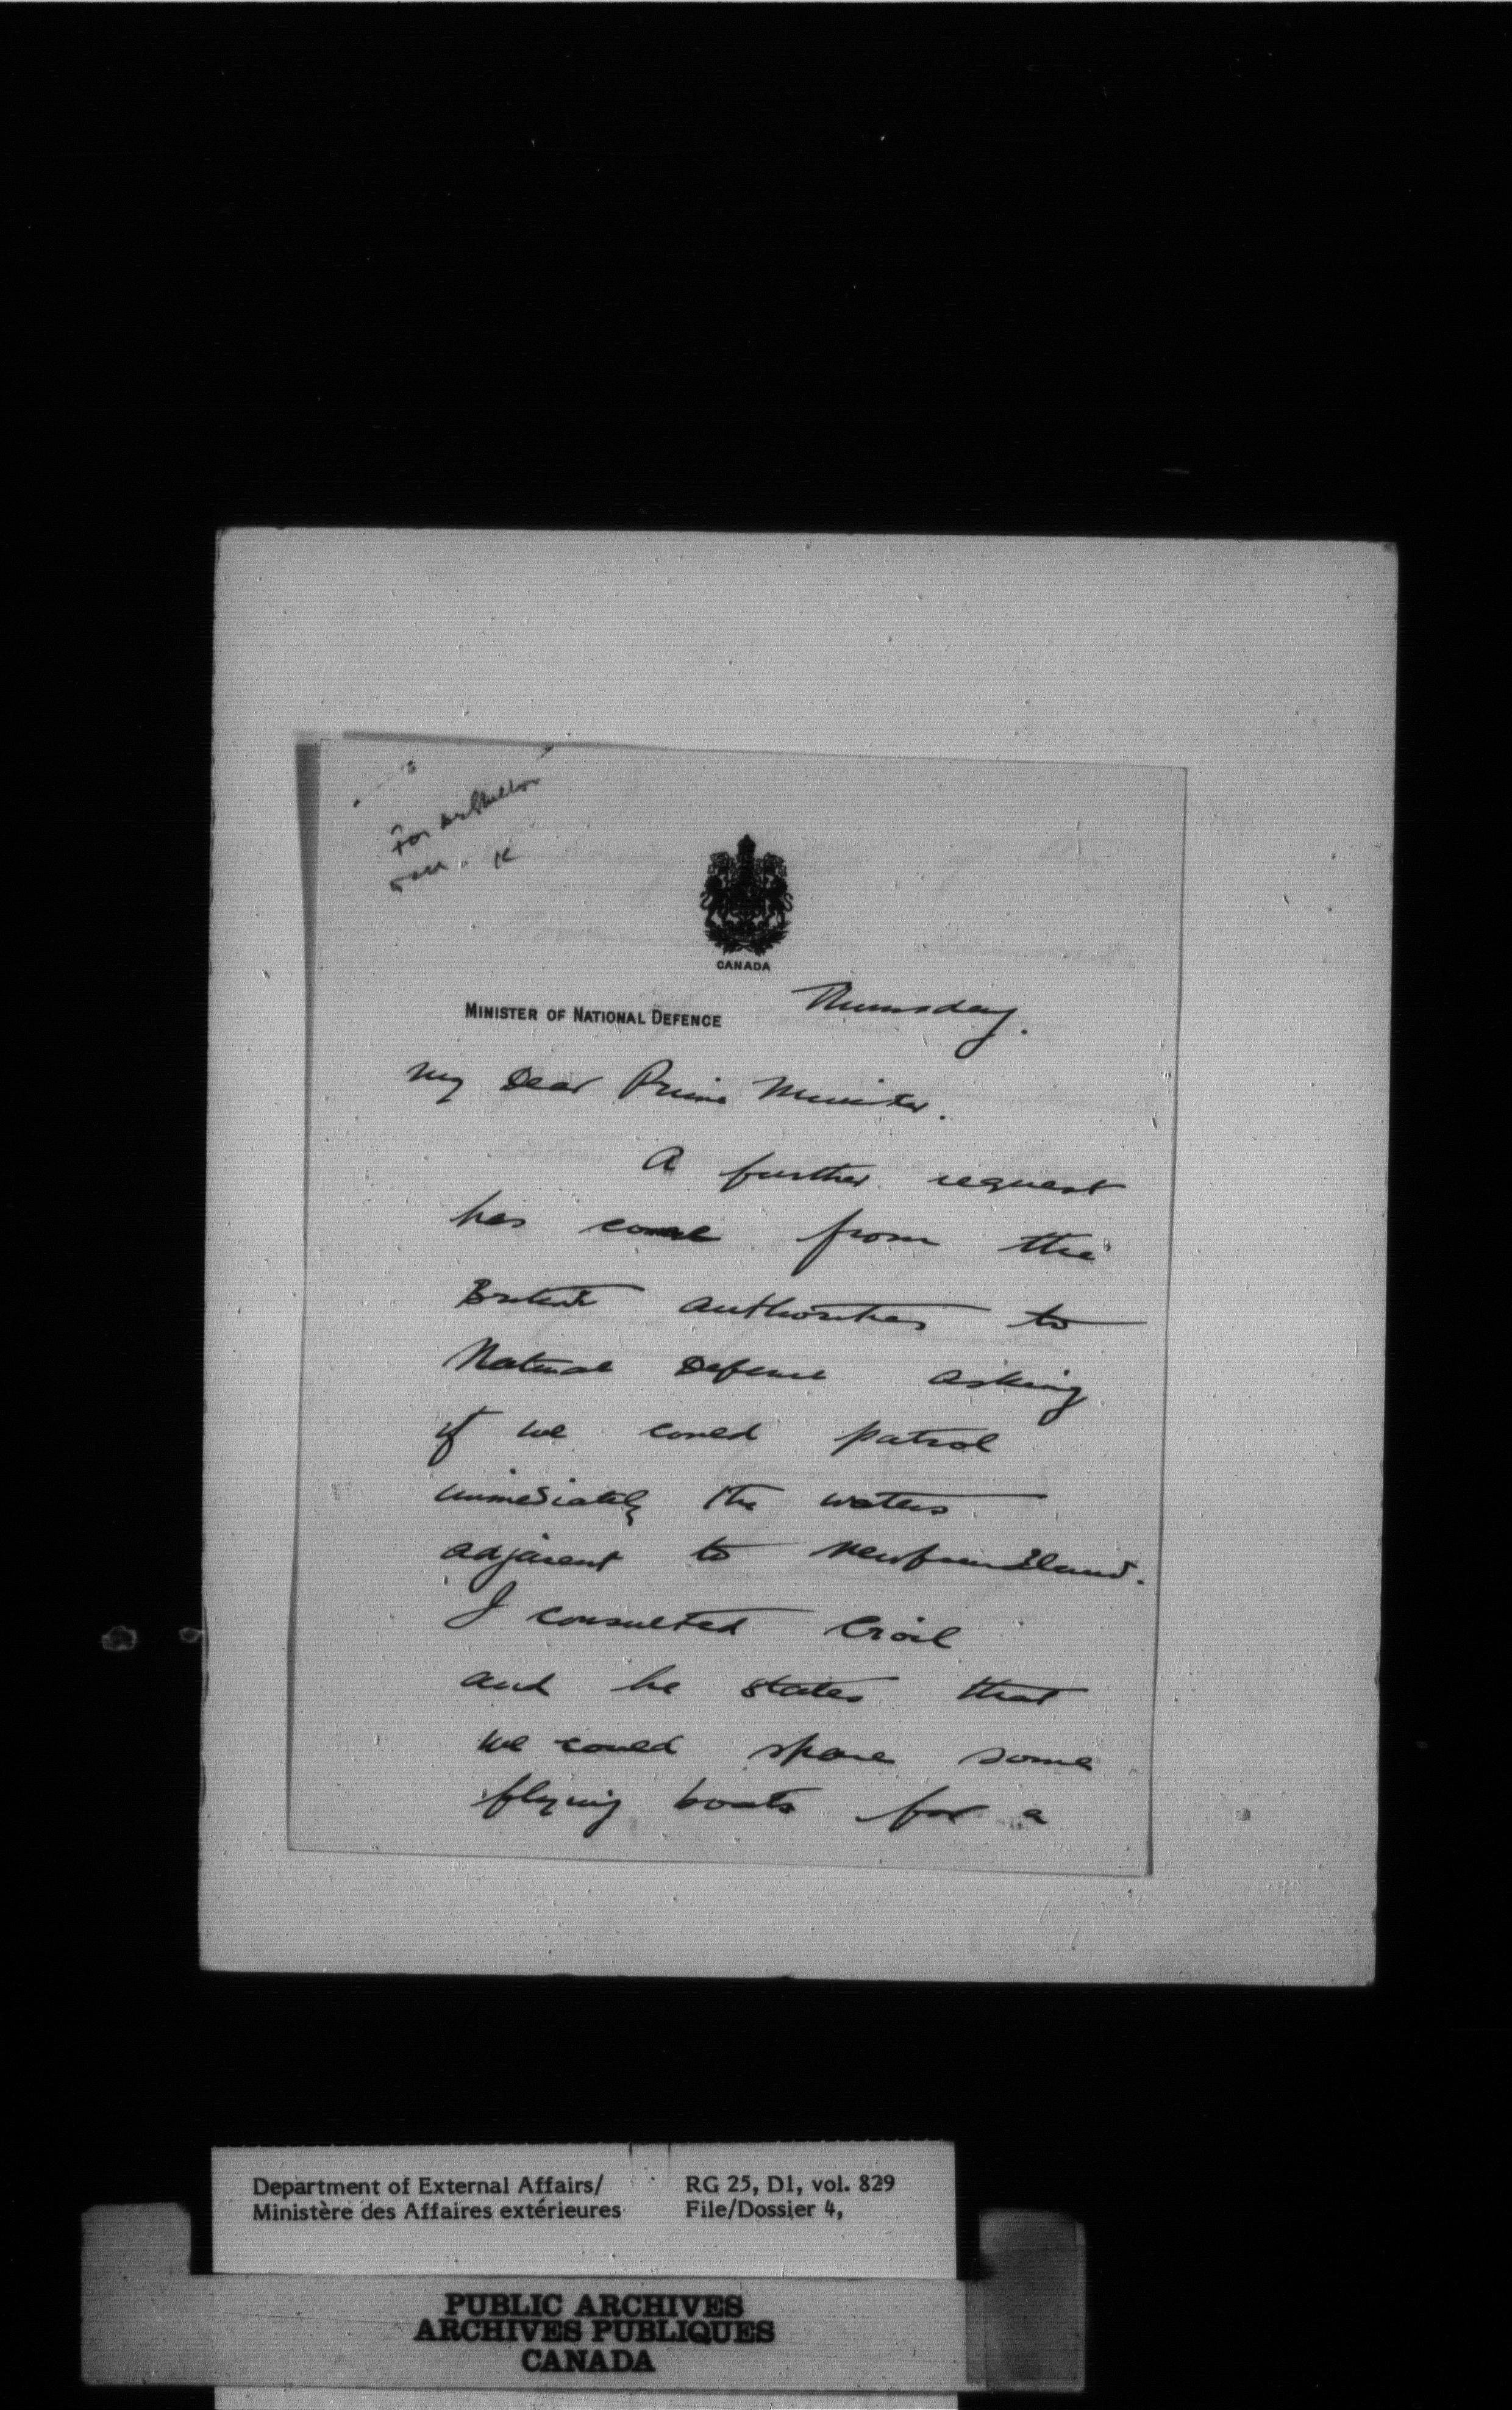 For Dr Skelton
K
CANADA
MINISTER OF NATIONAL DEFENCE
Thursday.
My Dear Prime Minister.
A further request
has come from the
British authorities to
National Defence asking
if we could patrol
immediately the waters
adjacent to Newfoundland.
I consulted Croil
and he states that
we could spare some
flying boats for a
Department of External Affairs/
Ministère des Affaires extérieures
RG 25, D1, vol. 829
File/Dossier 4,
PUBLIC ARCHIVES
ARCHIVES PUBLIQUES
CANADA